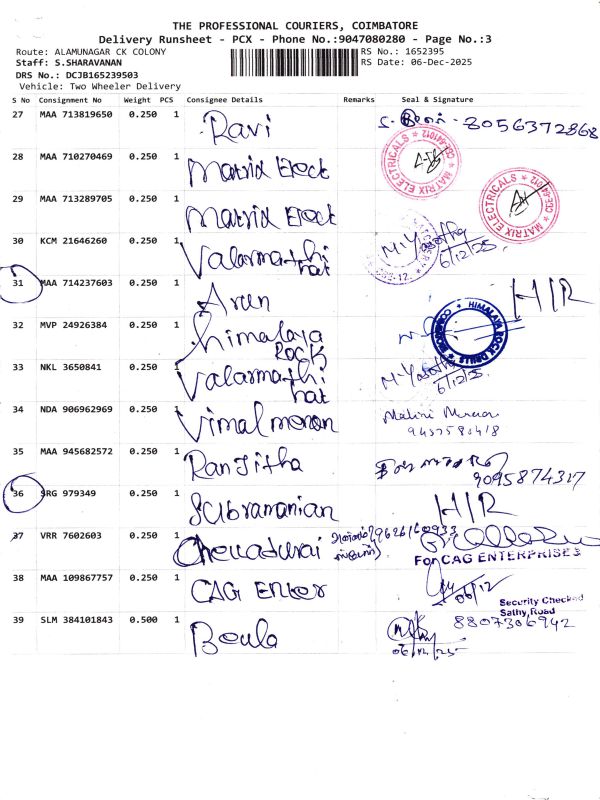 THE PROFESSIONAL COURIERS, COIMBATORE
Delivery Runsheet - PCX - Phone No.:9047080280 - Page No.:3
Route: ALAMUNAGAR CK COLONY RS No.: 1652395
Staff: S.SHARAVANAN RS Date: 06-Dec-2025
DRS No.: DCJB165239503
Vehicle: Two Wheeler Delivery
S No Consignment No Weight PCS Consignee Details Remarks Seal & Signature
27 MAA 713819650 0.250 1 Ravi 8056372868
28 MAA 710270469 0.250 1 Matrix Elect
MATRIX ELECTRICALS
29 MAA 713289705 0.250 1 Matrix Elect
MATRIX ELECTRICALS
30 KCM 21646260 0.250 1 Valarmathi
hat 6/12/25
31 MAA 714237603 0.250 1 Arun H/R
32 MVP 24926384 0.250 1 himalaya
ROCK HIMALAYA ROCK DRILLS
33 NKL 3650841 0.250 1 Valarmathi
hat 6/12/25
34 NDA 906962969 0.250 1 Vimal menon
35 MAA 945682572 0.250 1 Ranjitha 9095874317
36 SRG 979349 0.250 1 Subramanian H/R
37 VRR 7602603 0.250 1 Chelladurai
For CAG ENTERPRISES
38 MAA 109867757 0.250 1 CAG Enter 06/12
Security Checked
Sathy Road
39 SLM 384101843 0.500 1 Beula 8807306942
06/12/25